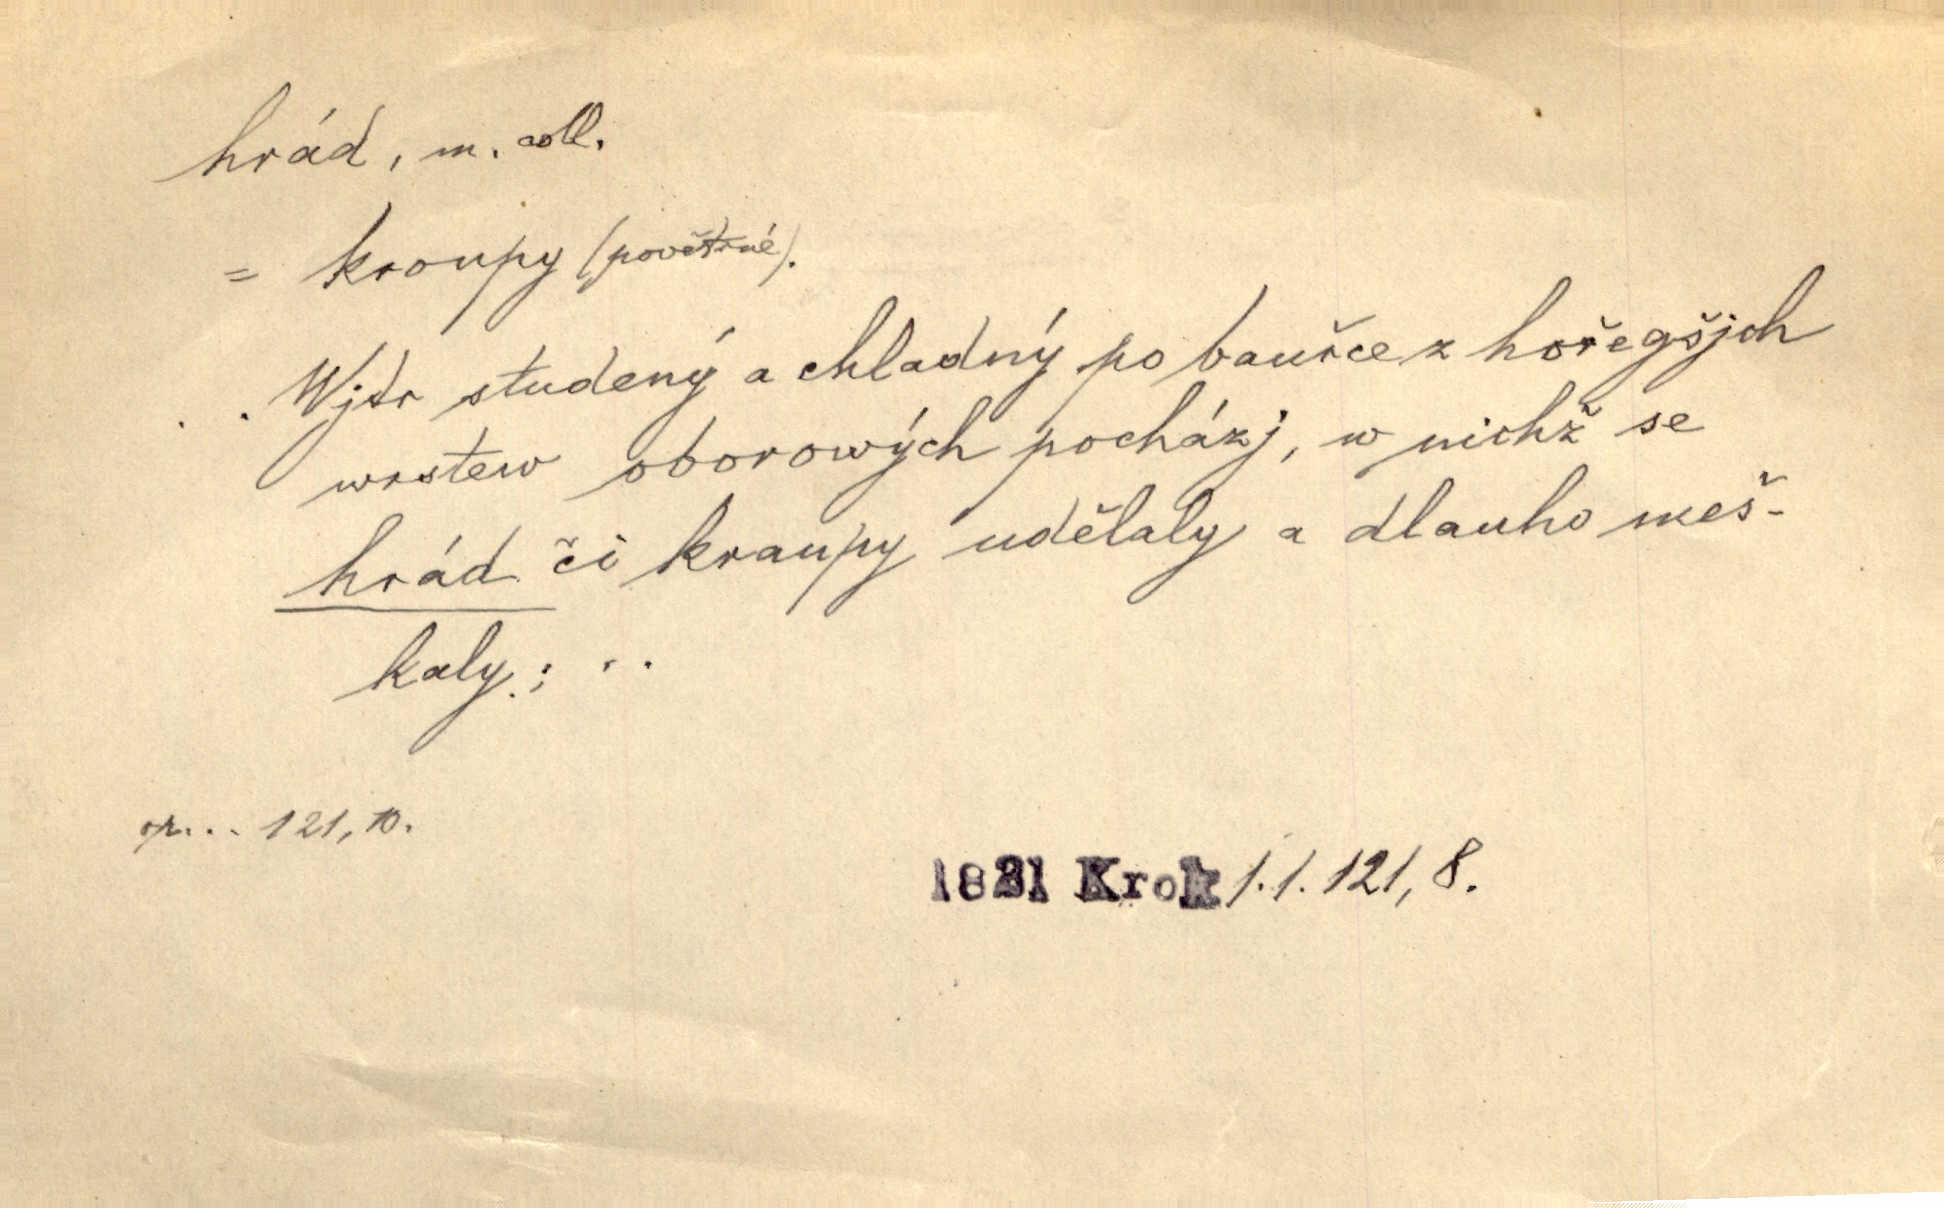 hrád, m. coll.
= kroupy (povětrné).
. . Wjtr studený a chladný po bauřce z hořegšjch
wrstew oborowých pocházj, w nichž se
hrád či kraupy udělaly a dlauho meš-
kaly; . .
op... 121, 10.
1821 Krok 1.1.121, 8.